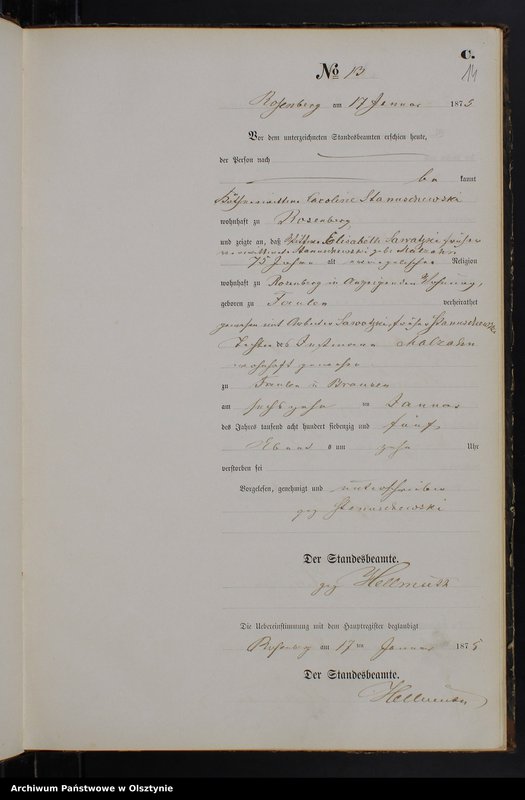 C.
14
No 13
Rosenberg am 17 Januar 1875
Vor dem unterzeichneten Standesbeamten erschien heute,
der Person nach
be kannt
Caroline Stanuschewski
wohnhaft zu Rosenberg
und zeigte an, daß Elisabeth Sawatzki früher
75 Jahre alt evangelischer Religion
wohnhaft zu Rosenberg in Anzeigenden Wohnung,
geboren zu verheirathet
gewesen mit Arbeiter Sawatzki, früher Stanuschewski
Tochter des Instmann
wohnhaft gewesen
zu Traulen u Brausen
am sechszehn ten Januar
des Jahres tausend acht hundert siebenzig und fünf,
Abend s um zehn Uhr
verstorben sei
Vorgelesen, genehmigt und unterschrieben
gez Stanuschewski
Der Standesbeamte.
gez Hellmuth
Die Uebereinstimmung mit dem Hauptregister beglaubigt
Rosenberg am 17 ten Januar 1875
Der Standesbeamte.
Hellmuth
Archiwum Państwowe w Olsztynie